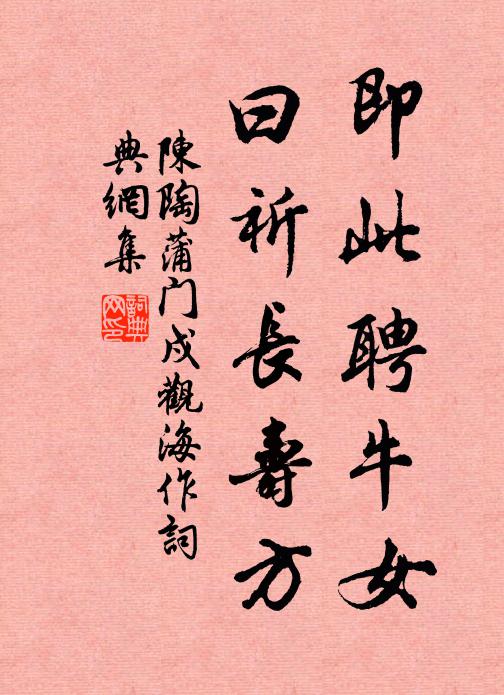 即此聘牛女
曰祈長壽方
陳陶蒲门戍觀海作詞
典網集
詞典
网印